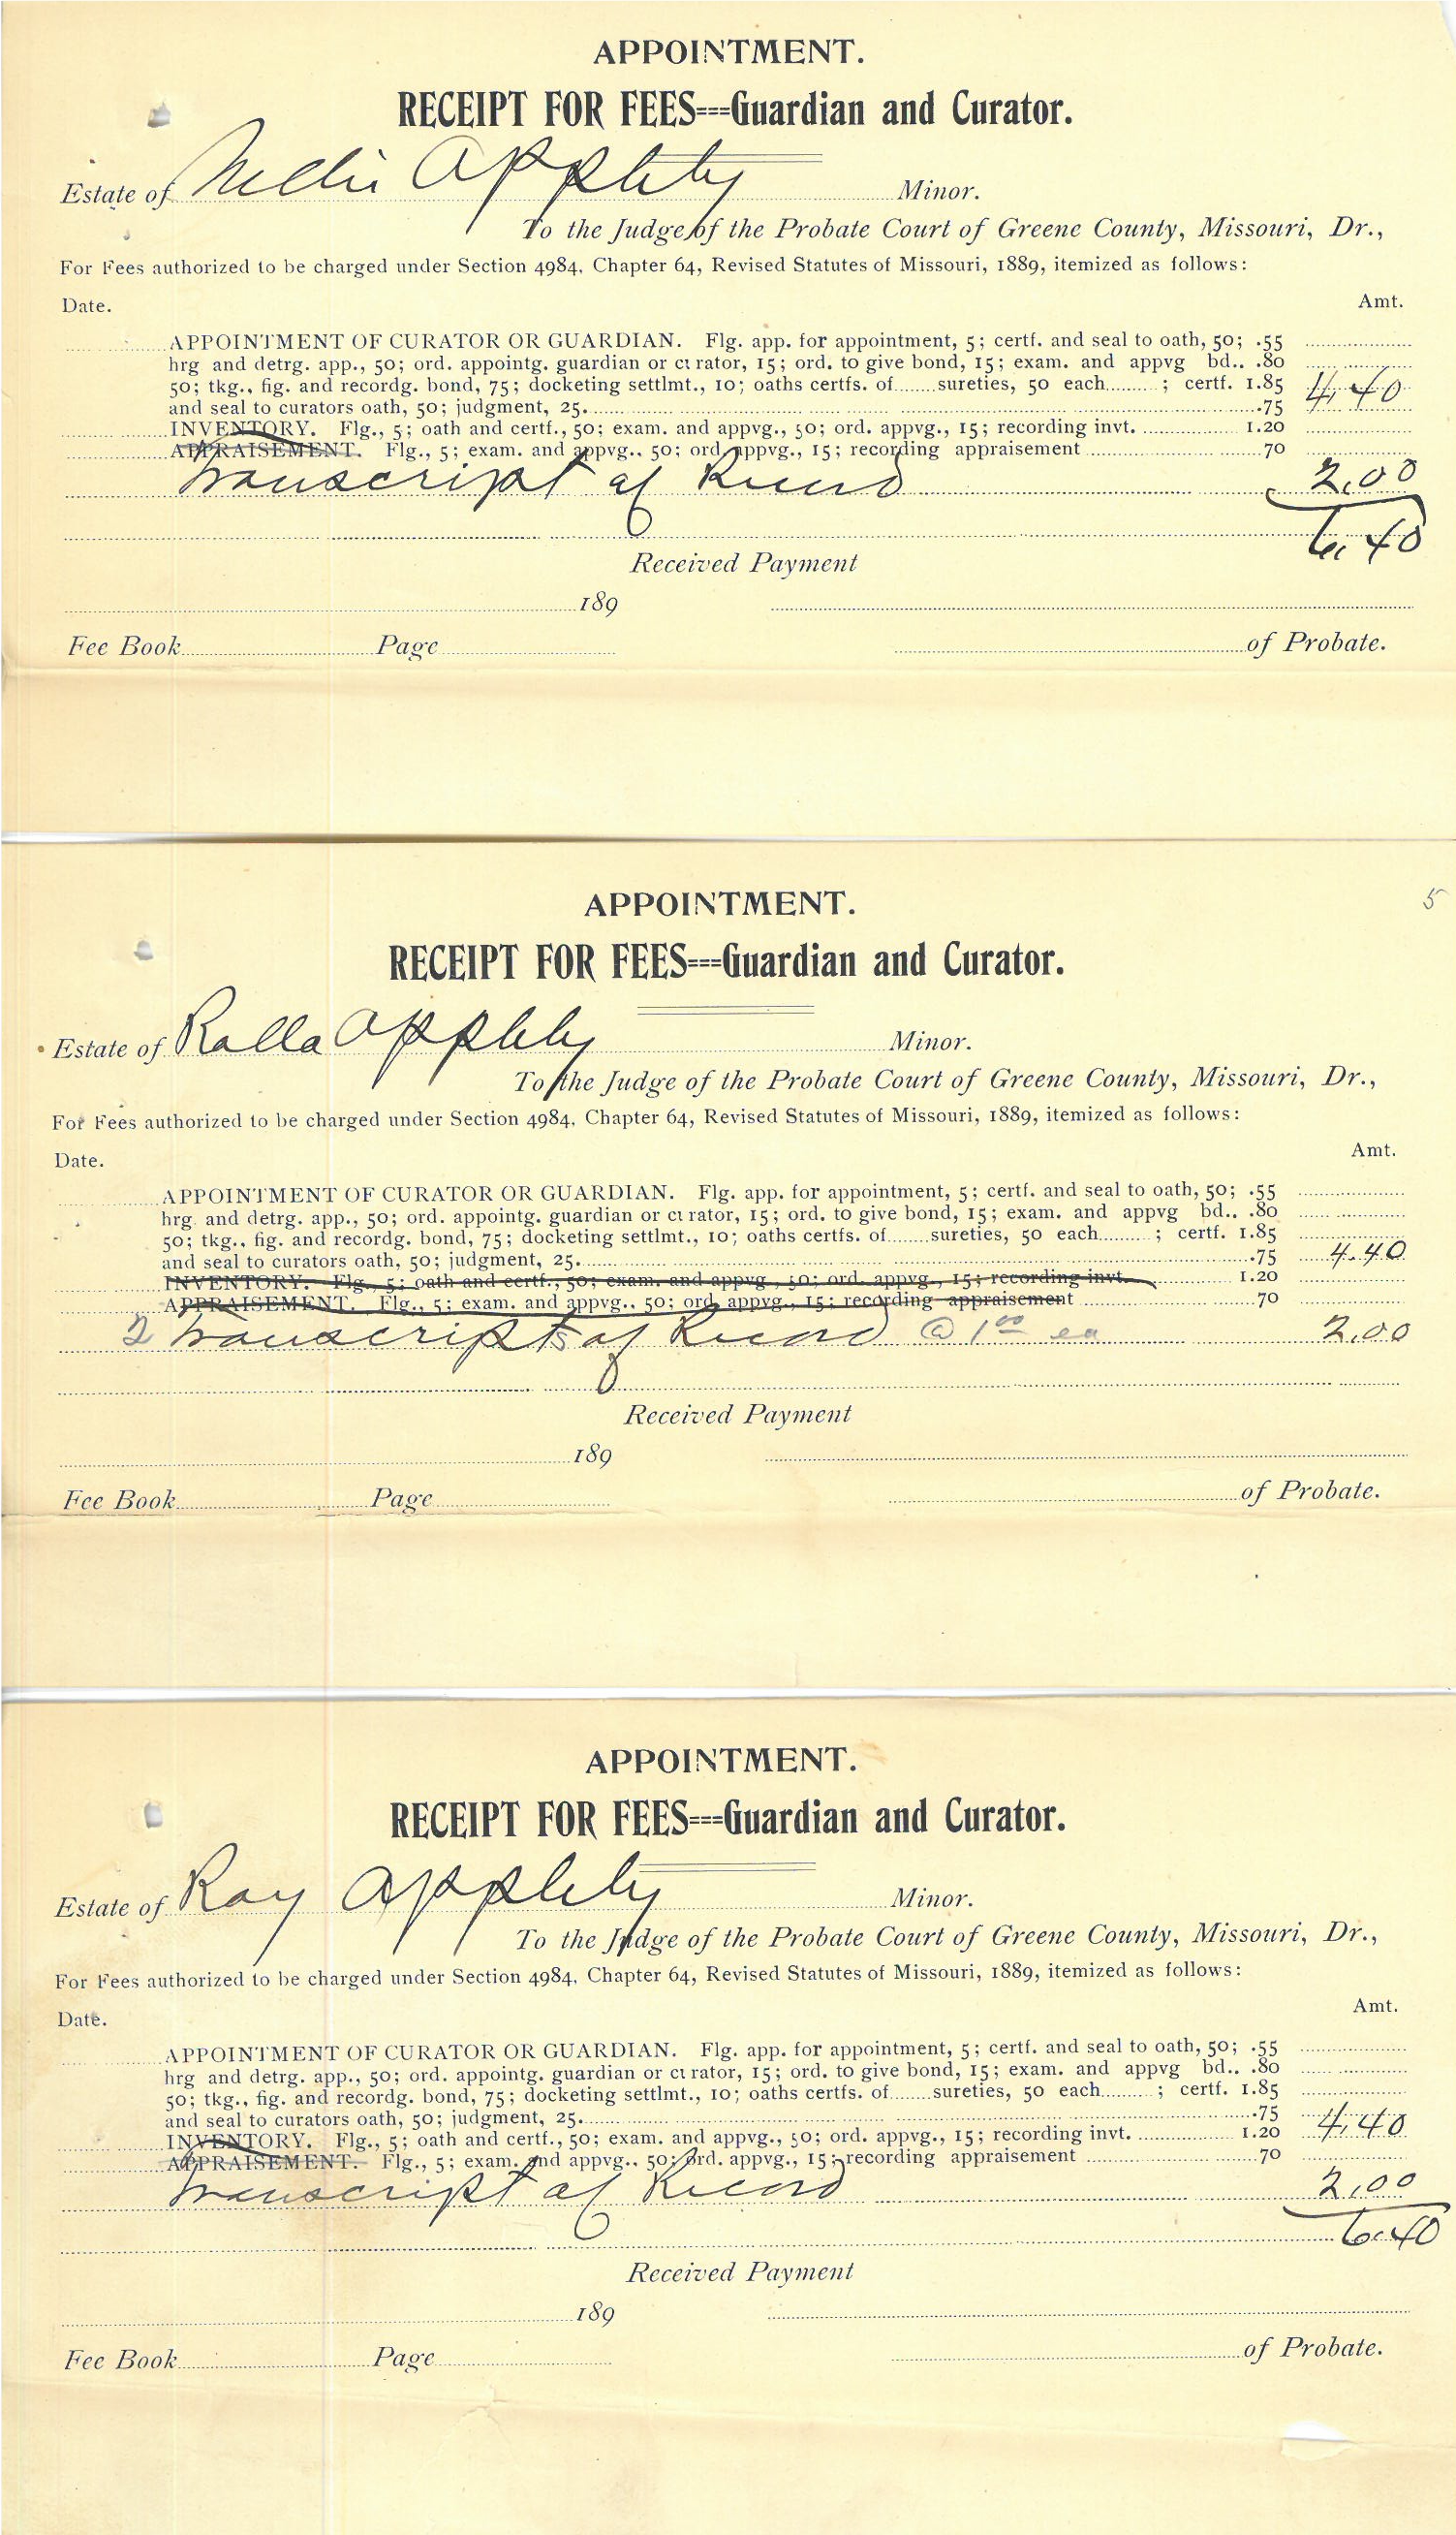 APPOINTMENT.
RECEIPT FOR FEES===Guardian and Curator.
Estate of Nellie Appleby Minor.
To the Judge of the Probate Court of Greene County, Missouri, Dr.,
For Fees authorized to be charged under Section 4984, Chapter 64, Revised Statutes of Missouri, 1889, itemized as follows:
Date. Amt.
APPOINTMENT OF CURATOR OR GUARDIAN. Flg. app. for appointment, 5; certf. and seal to oath, 50; .55
hrg and detrg. app., 50; ord. appointg. guardian or curator, 15; ord. to give bond, 15; exam. and appvg bd.. .80
50; tkg., fig. and recordg. bond, 75; docketing settlmt., 10; oaths certfs. of......sureties, 50 each.........; certf. 1.85 4.40
and seal to curators oath, 50; judgment, 25. .75
INVENTORY. Flg., 5; oath and certf., 50; exam. and appvg., 50; ord. appvg., 15; recording invt. 1.20
APPRAISEMENT. Flg., 5; exam. and appvg.. 50; ord. appvg., 15; recording appraisement 70
Transcript of Record 2.00
6.40
Received Payment
189
Fee Book Page of Probate.
5
APPOINTMENT.
RECEIPT FOR FEES===Guardian and Curator.
Estate of Ralla Appleby Minor.
To the Judge of the Probate Court of Greene County, Missouri, Dr.,
For Fees authorized to be charged under Section 4984, Chapter 64, Revised Statutes of Missouri, 1889, itemized as follows:
Date. Amt.
APPOINTMENT OF CURATOR OR GUARDIAN. Flg. app. for appointment, 5; certf. and seal to oath, 50; .55
hrg and detrg. app., 50; ord. appointg. guardian or curator, 15; ord. to give bond, 15; exam. and appvg bd.. .80
50; tkg., fig. and recordg. bond, 75; docketing settlmt., 10; oaths certfs. of......sureties, 50 each.........; certf. 1.85
and seal to curators oath, 50; judgment, 25. .75 4.40
INVENTORY. Flg., 5; oath and certf., 50; exam. and appvg., 50; ord. appvg., 15; recording invt. 1.20
APPRAISEMENT. Flg., 5; exam. and appvg.. 50; ord. appvg., 15; recording appraisement 70
2 Transcripts of Record @ 1.00 ea 2.00
Received Payment
189
Fee Book Page of Probate.
APPOINTMENT.
RECEIPT FOR FEES===Guardian and Curator.
Estate of Ray Appleby Minor.
To the Judge of the Probate Court of Greene County, Missouri, Dr.,
For Fees authorized to be charged under Section 4984, Chapter 64, Revised Statutes of Missouri, 1889, itemized as follows:
Date. Amt.
APPOINTMENT OF CURATOR OR GUARDIAN. Flg. app. for appointment, 5; certf. and seal to oath, 50; .55
hrg and detrg. app., 50; ord. appointg. guardian or curator, 15; ord. to give bond, 15; exam. and appvg bd.. .80
50; tkg., fig. and recordg. bond, 75; docketing settlmt., 10; oaths certfs. of......sureties, 50 each.........; certf. 1.85
and seal to curators oath, 50; judgment, 25. .75
INVENTORY. Flg., 5; oath and certf., 50; exam. and appvg., 50; ord. appvg., 15; recording invt. 1.20 4.40
APPRAISEMENT. Flg., 5; exam. and appvg.. 50; ord. appvg., 15; recording appraisement 70
Transcript of Record 2.00
6.40
Received Payment
189
Fee Book Page of Probate.